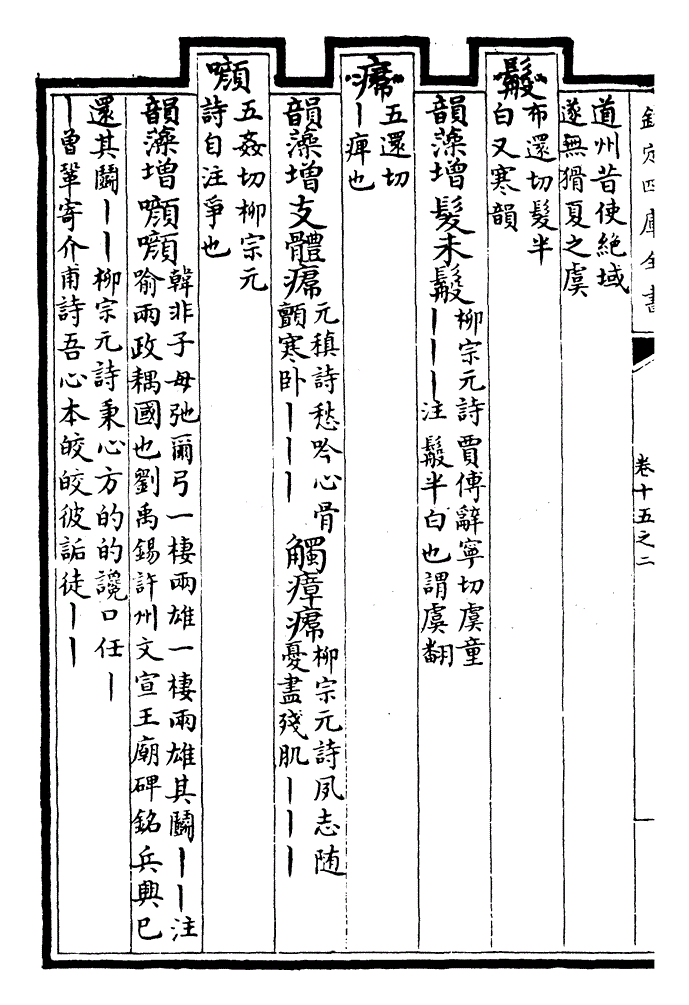 欽定四庫全書 卷十五之二
道州昔使絶域
遂無猾夏之虞
布還切髮半
白又寒韻
韻藻增髮未
柳宗元詩賈傅辭寧切虞童
丨丨丨注 半白也謂虞翻
五還切
丨痺也
韻藻增支體
元稹詩愁吟心骨
顫寒卧丨丨丨
觸瘴
柳宗元詩夙志随
憂盡殘肌丨丨丨
㘖
五姦切柳宗元
詩自注爭也
韻藻增㘖㘖
韓非子毋弛爾弓一棲兩雄一棲兩雄其鬬丨丨注
喻兩政耦國也劉禹錫許州文宣王廟碑銘兵興已
還其鬬丨丨柳宗元詩秉心方的的讒口任丨
丨曾鞏寄介甫詩吾心本皎皎彼詬徒丨丨